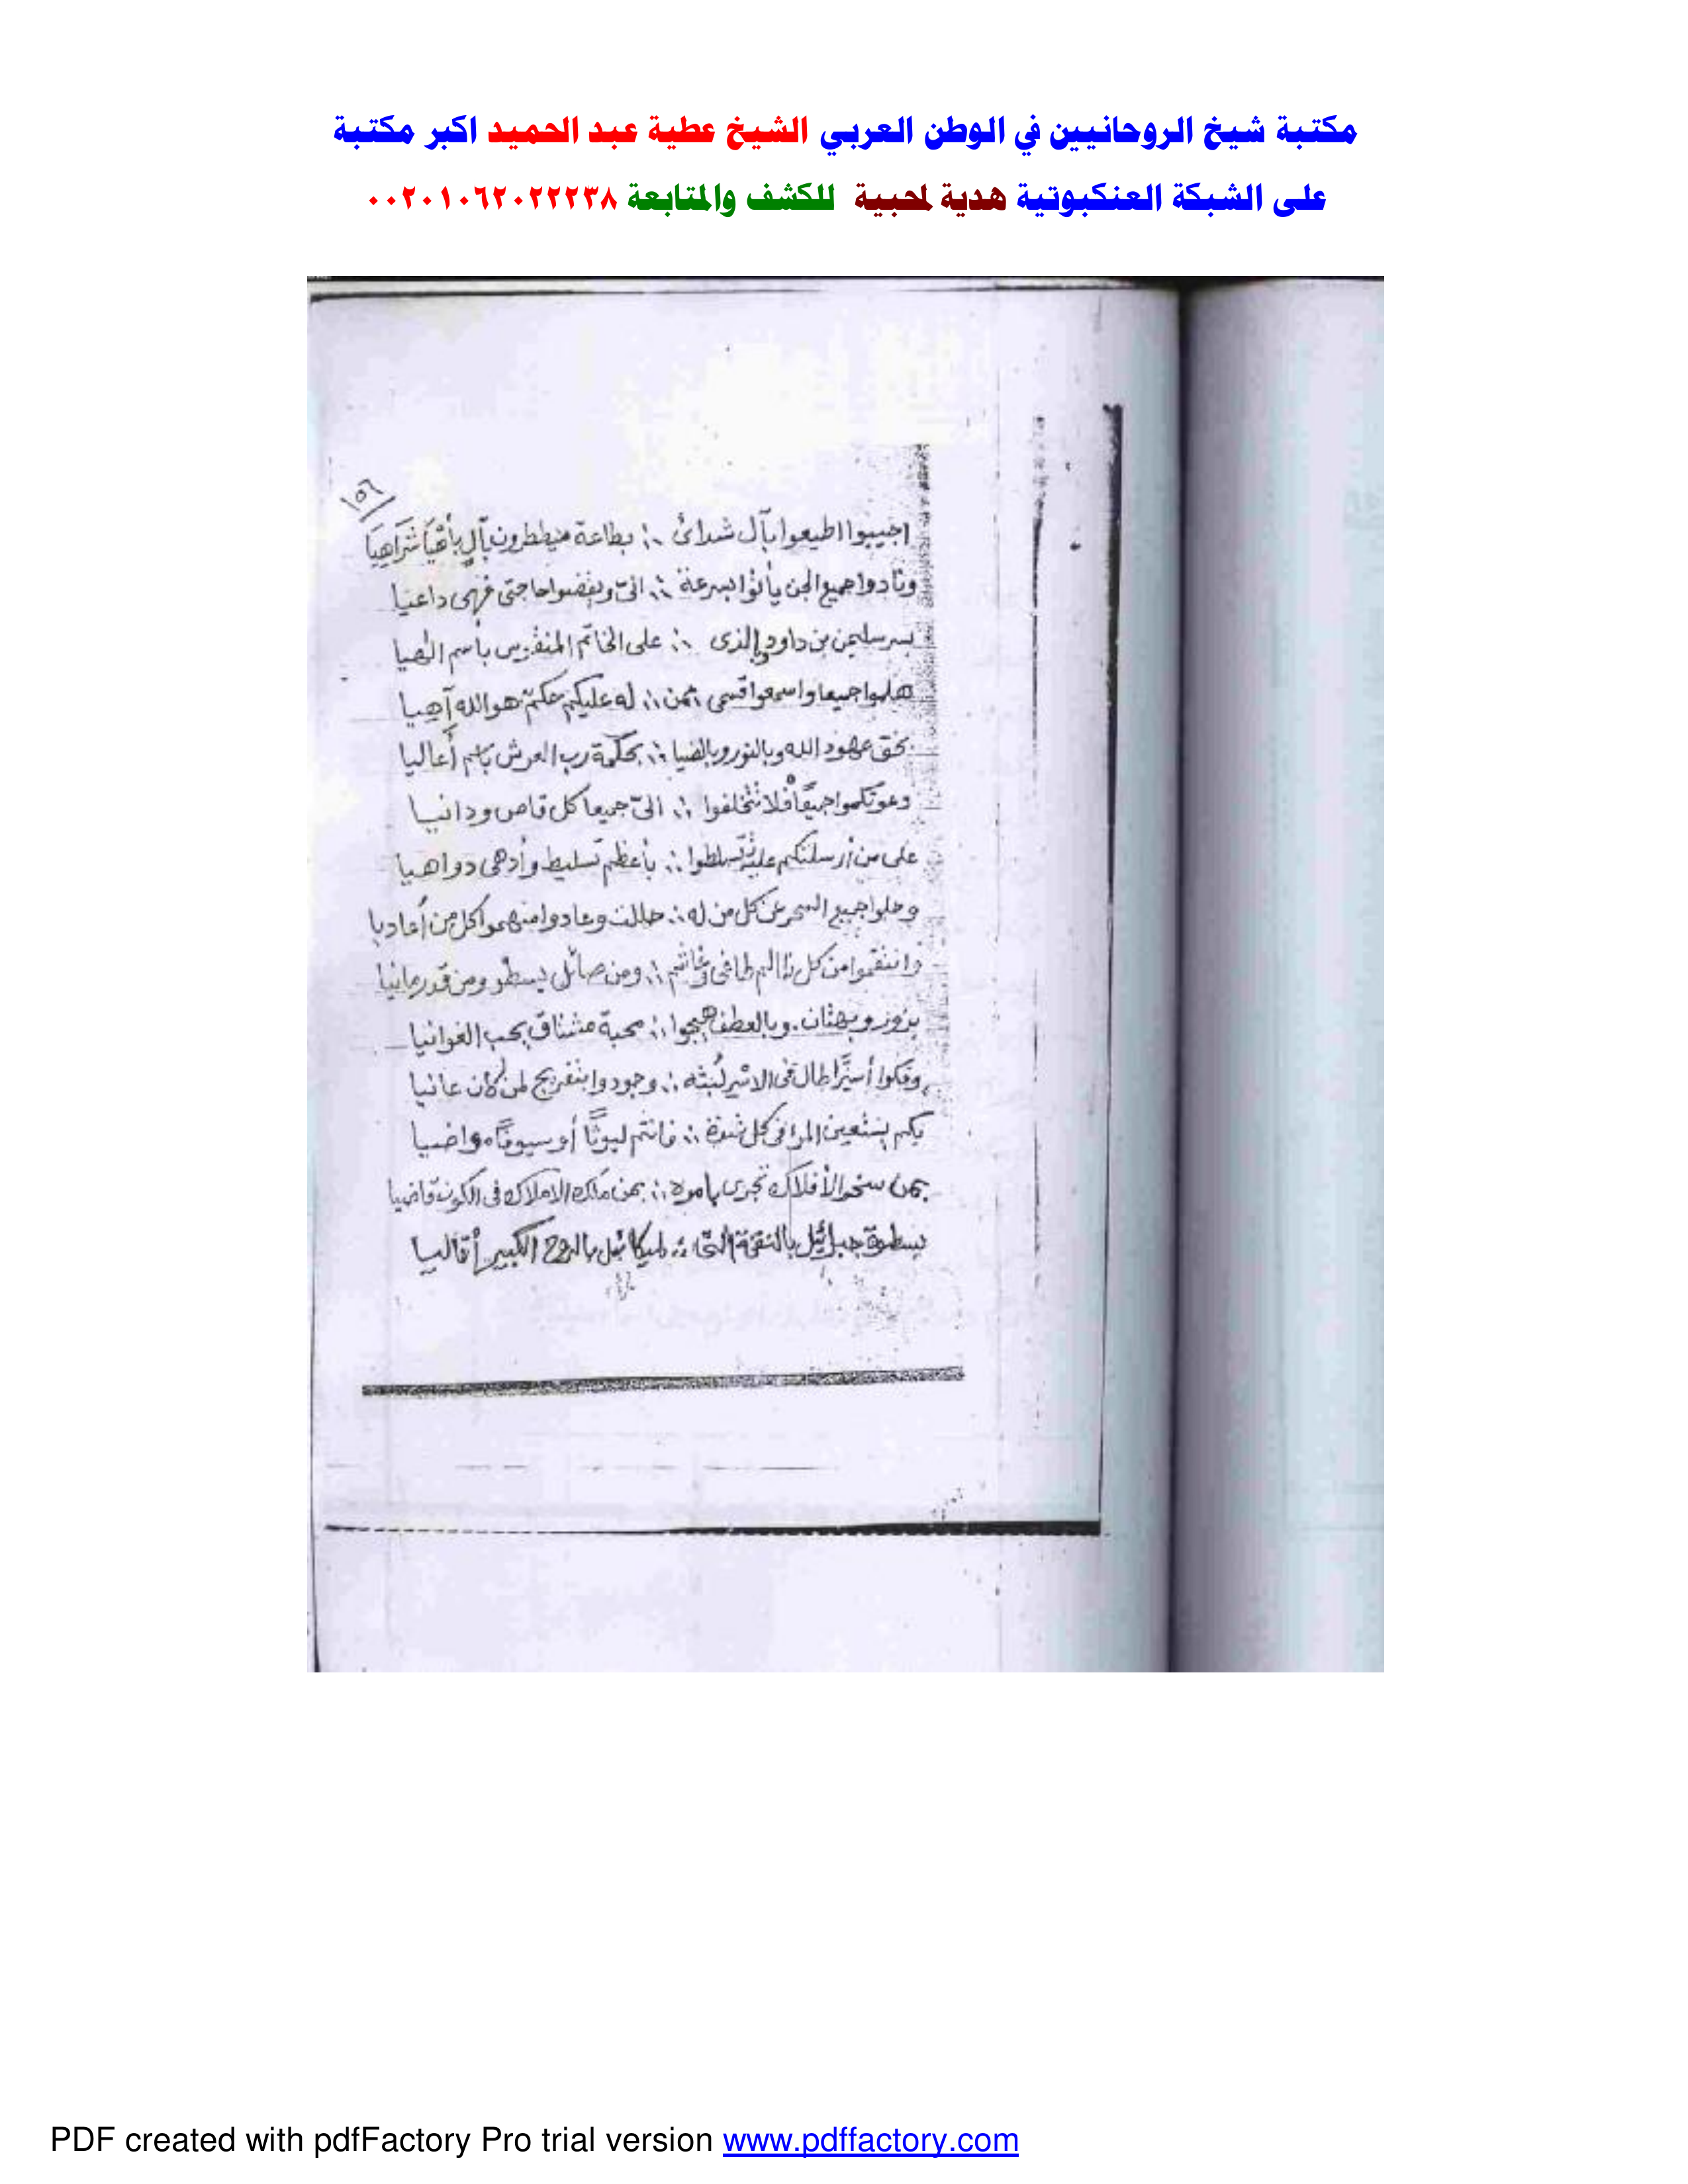 مكتبة شيخ الروحانيين في الوطن العربي الشيخ عطية عبد الحميد اكبر مكتبة
على الشبكة العنكبوتية هدية لمحبية للكشف والمتابعة ٠٠٢٠١٠٦٢٠٢٢٢٣٨
١٥٦
اجيبوا اطيعوا بآل شدائ ؛ بطاعة ميططرون بآل بأهيا شراهيا
ونادوا جميع الجن يأتوا بسرعة ؛ الىّ ويقضوا حاجتى فهى داعيا
بسر سليمن بن داود والذى ؛ على الخاتم المنقوس بأسم الهيا
هلموا جميعا واسمعوا قسمى بمن ؛ له عليكم حكم هو الله آهيا
بحق عهود الله وبالنور وبالضيا ؛ بحكمة رب العرش باسم أعاليا
دعوتكموا جميعًا فلا تتخلفوا ؛ الىّ جميعا كل قاص ودانيا
على من أرسلتكم عليه تسلطوا ؛ بأعظم تسليط وأدهى دواهيا
وحلوا جميع السحر عن كل من له ؛ حللت وعادوا منهموا كل من أعاديا
وانتقموا من كل ظالم طاغى وغاشم ؛ ومن صائل يسطو ومن قد رمانيا
بزور وبهتان . وبالعطف هيجوا ؛ محبة مشتاق بحب الغوانيا
وفكوا أسيرًا طال فى الاسر لبثه ؛ وجودوا بتفريج لمن كان عانيا
بكم يستعين المرا فى كل شدة ؛ فانتم ليوثًا أو سيوفًا مواضيا
بمن سخر الأفلاك تجرى بامره ؛ بمن ملك الاملاك فى الكون قاضيا
بسطوة جبرائيل ؛ ميكائيل بالروح الكبير
PDF created with pdfFactory Pro trial version www.pdffactory.com